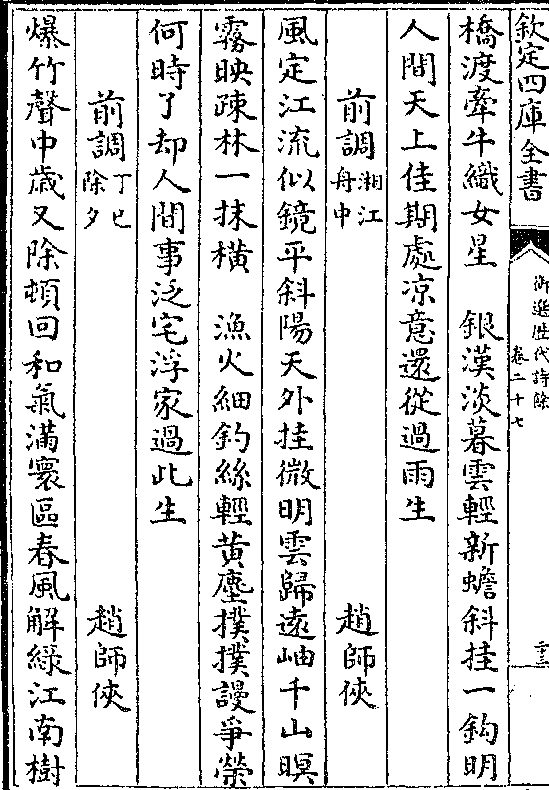 欽定四庫全書
御選歴代詩餘
卷二十七
橋渡牽牛織女星　銀漢淡暮雲輕新蟾斜挂一鈎明
人間天上佳期處凉意還從過雨生
前調湘江舟中　趙師俠
風定江流似鏡平斜陽天外挂微明雲歸遠岫千山暝
霧映疎林一抹橫　漁火細釣絲輕黄塵撲撲謾爭榮
何時了却人間事泛宅浮家過此生
前調丁巳除夕　趙師俠
爆竹聲中歲又除頓回和氣滿寰區春風解綠江南樹